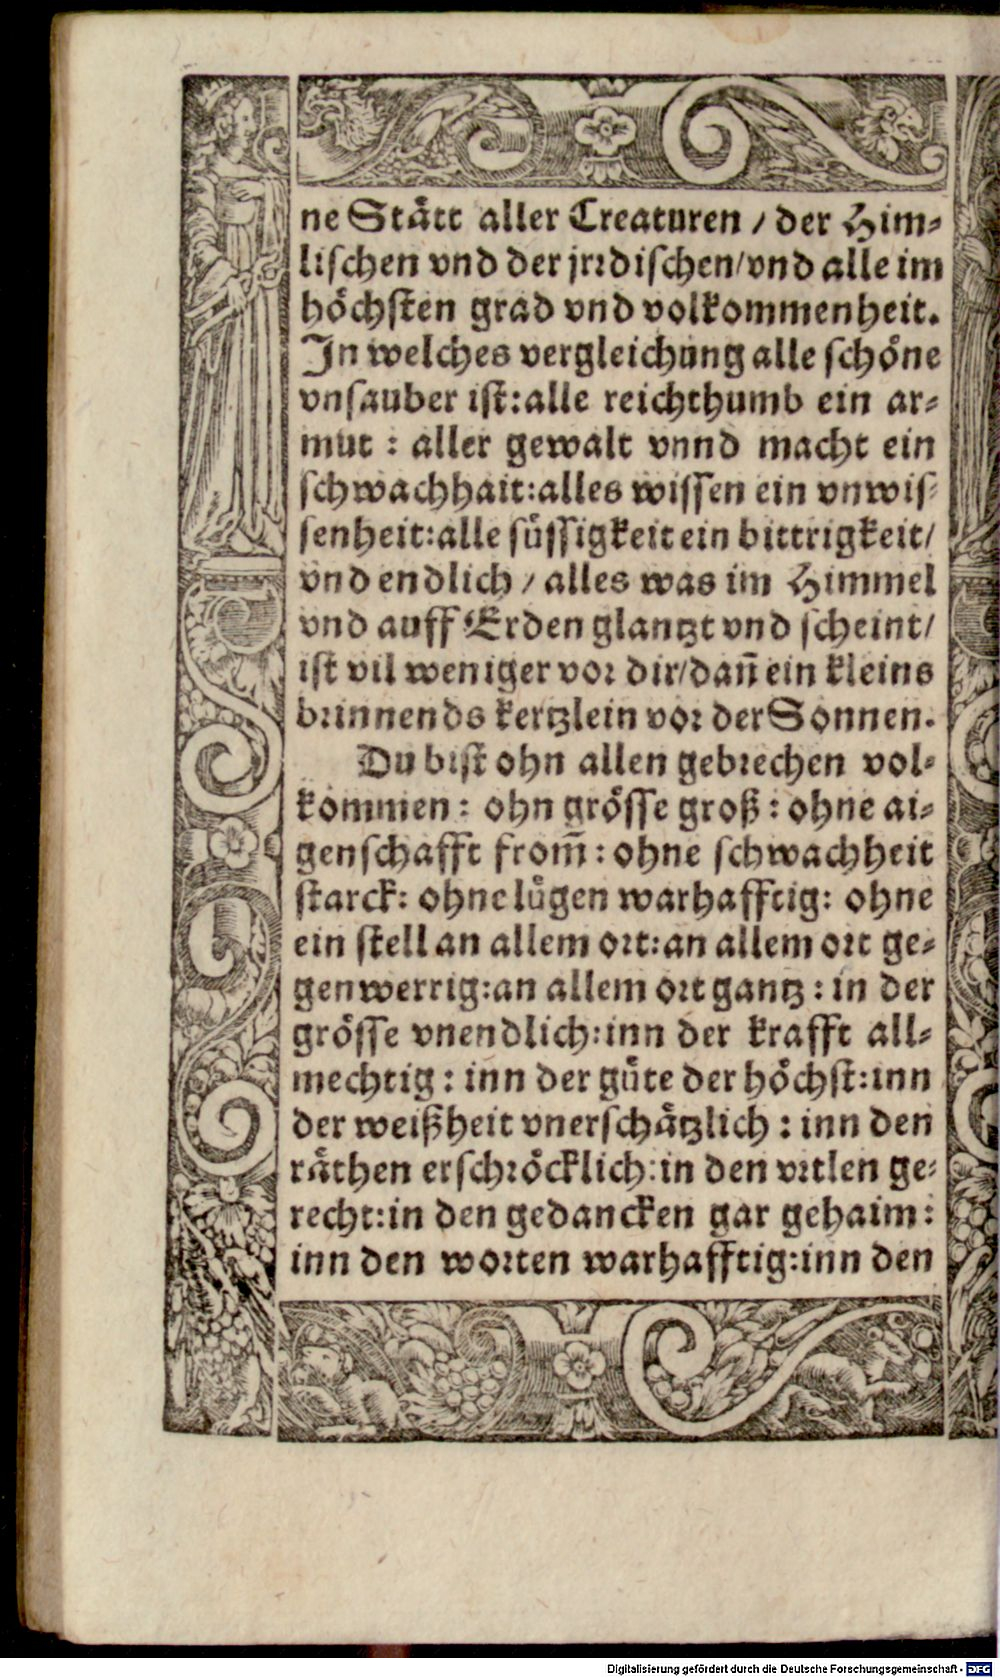 ne Stått aller Creaturen / der Him⸗
lischen vnd der jrꝛdischen/vnd alle im
höchsten grad vnd volkommenheit.
In welches vergleichung alle schöne
vnsauber ist:alle reichthumb ein ar⸗
mut : aller gewalt vnnd macht ein
schwachhait:alles wissen ein vnwis⸗
senheit:alle süssigkeit ein bittrigkeit/
vnd endlich / alles was im Himmel
vnd auff Erden glantzt vnd scheint/
ist vil weniger voꝛ dir/dan̄ ein kleins
bꝛinnends kertzlein voꝛ der Sonnen.
Du bist ohn allen gebꝛechen vol⸗
kommen : ohn grösse groß : ohne ai⸗
genschafft from̄ : ohne schwachheit
starck: ohne lůgen warhafftig: ohne
ein stell an allem oꝛt:an allem oꝛt ge⸗
genwerrig:an allem oꝛt gantz : in der
grösse vnendlich:inn der krafft all⸗
mechtig : inn der gůte der höchst:inn
der weißheit vnerschåtzlich : inn den
råthen erschꝛöcklich:in den vꝛtlen ge⸗
recht:in den gedancken gar gehaim:
inn den woꝛten warhafftig:inn den
Digitalisierung gefördert durch die Deutsche Forschungsgemeinschaft - DFG